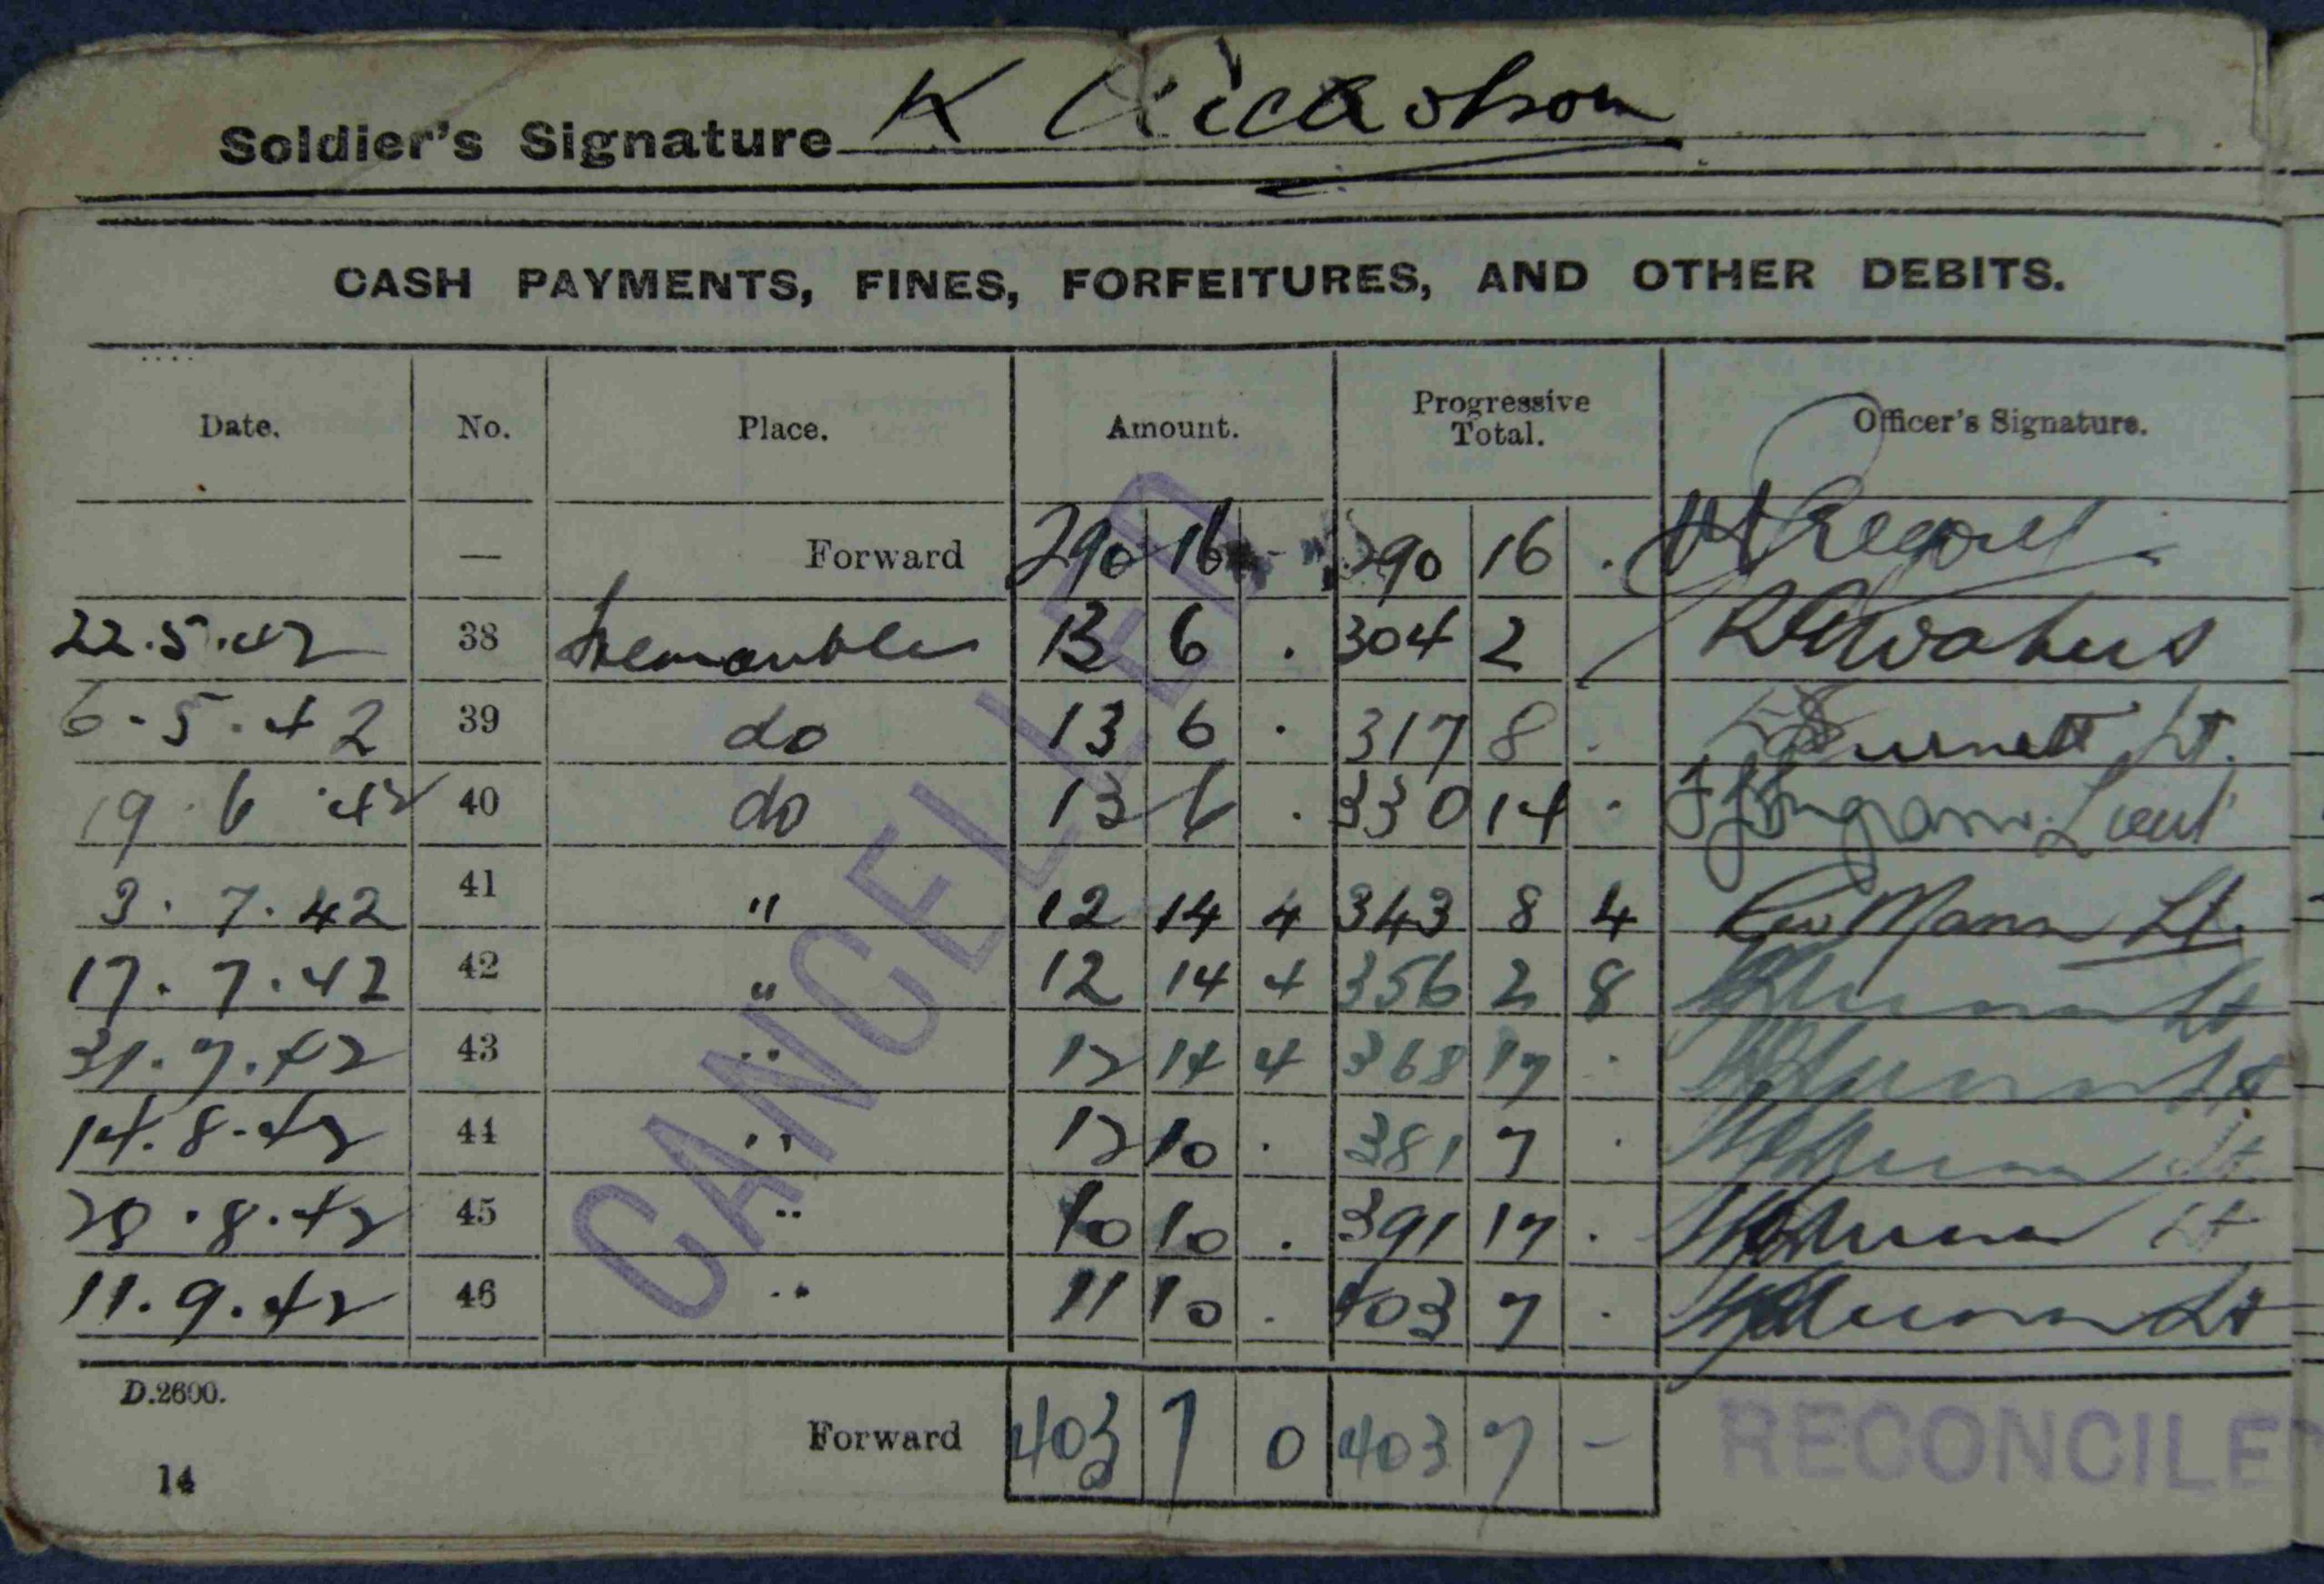 Soldier's Signature K Nickolson
CASH PAYMENTS, FINES, FORFEITURES, AND OTHER DEBITS.
Date. No. Place. Amount. Progressive Total. Officer's Signature.
— Forward 290 16 - 290 16 .
22.5.42 38 Fremantle 13 6 . 304 2
6.5.42 39 do 13 6 . 317 8 . Burnett Lt.
19.6.42 40 do 13 6 . 330 14 . Ingram Lieut
3.7.42 41 " 12 14 4 343 8 4 Geo Mann Lt.
17.7.42 42 " 12 14 4 356 2 8 Lt
31.7.42 43 " 12 14 4 368 17 . Lt
14.8.42 44 " 12 10 . 381 7 . Lt
28.8.42 45 " 10 10 . 391 17 . Lt
11.9.42 46 " 11 10 . 403 7 . Lt
D.2600.
Forward 403 7 0 403 7 -
14
CANCELLED
RECONCILE